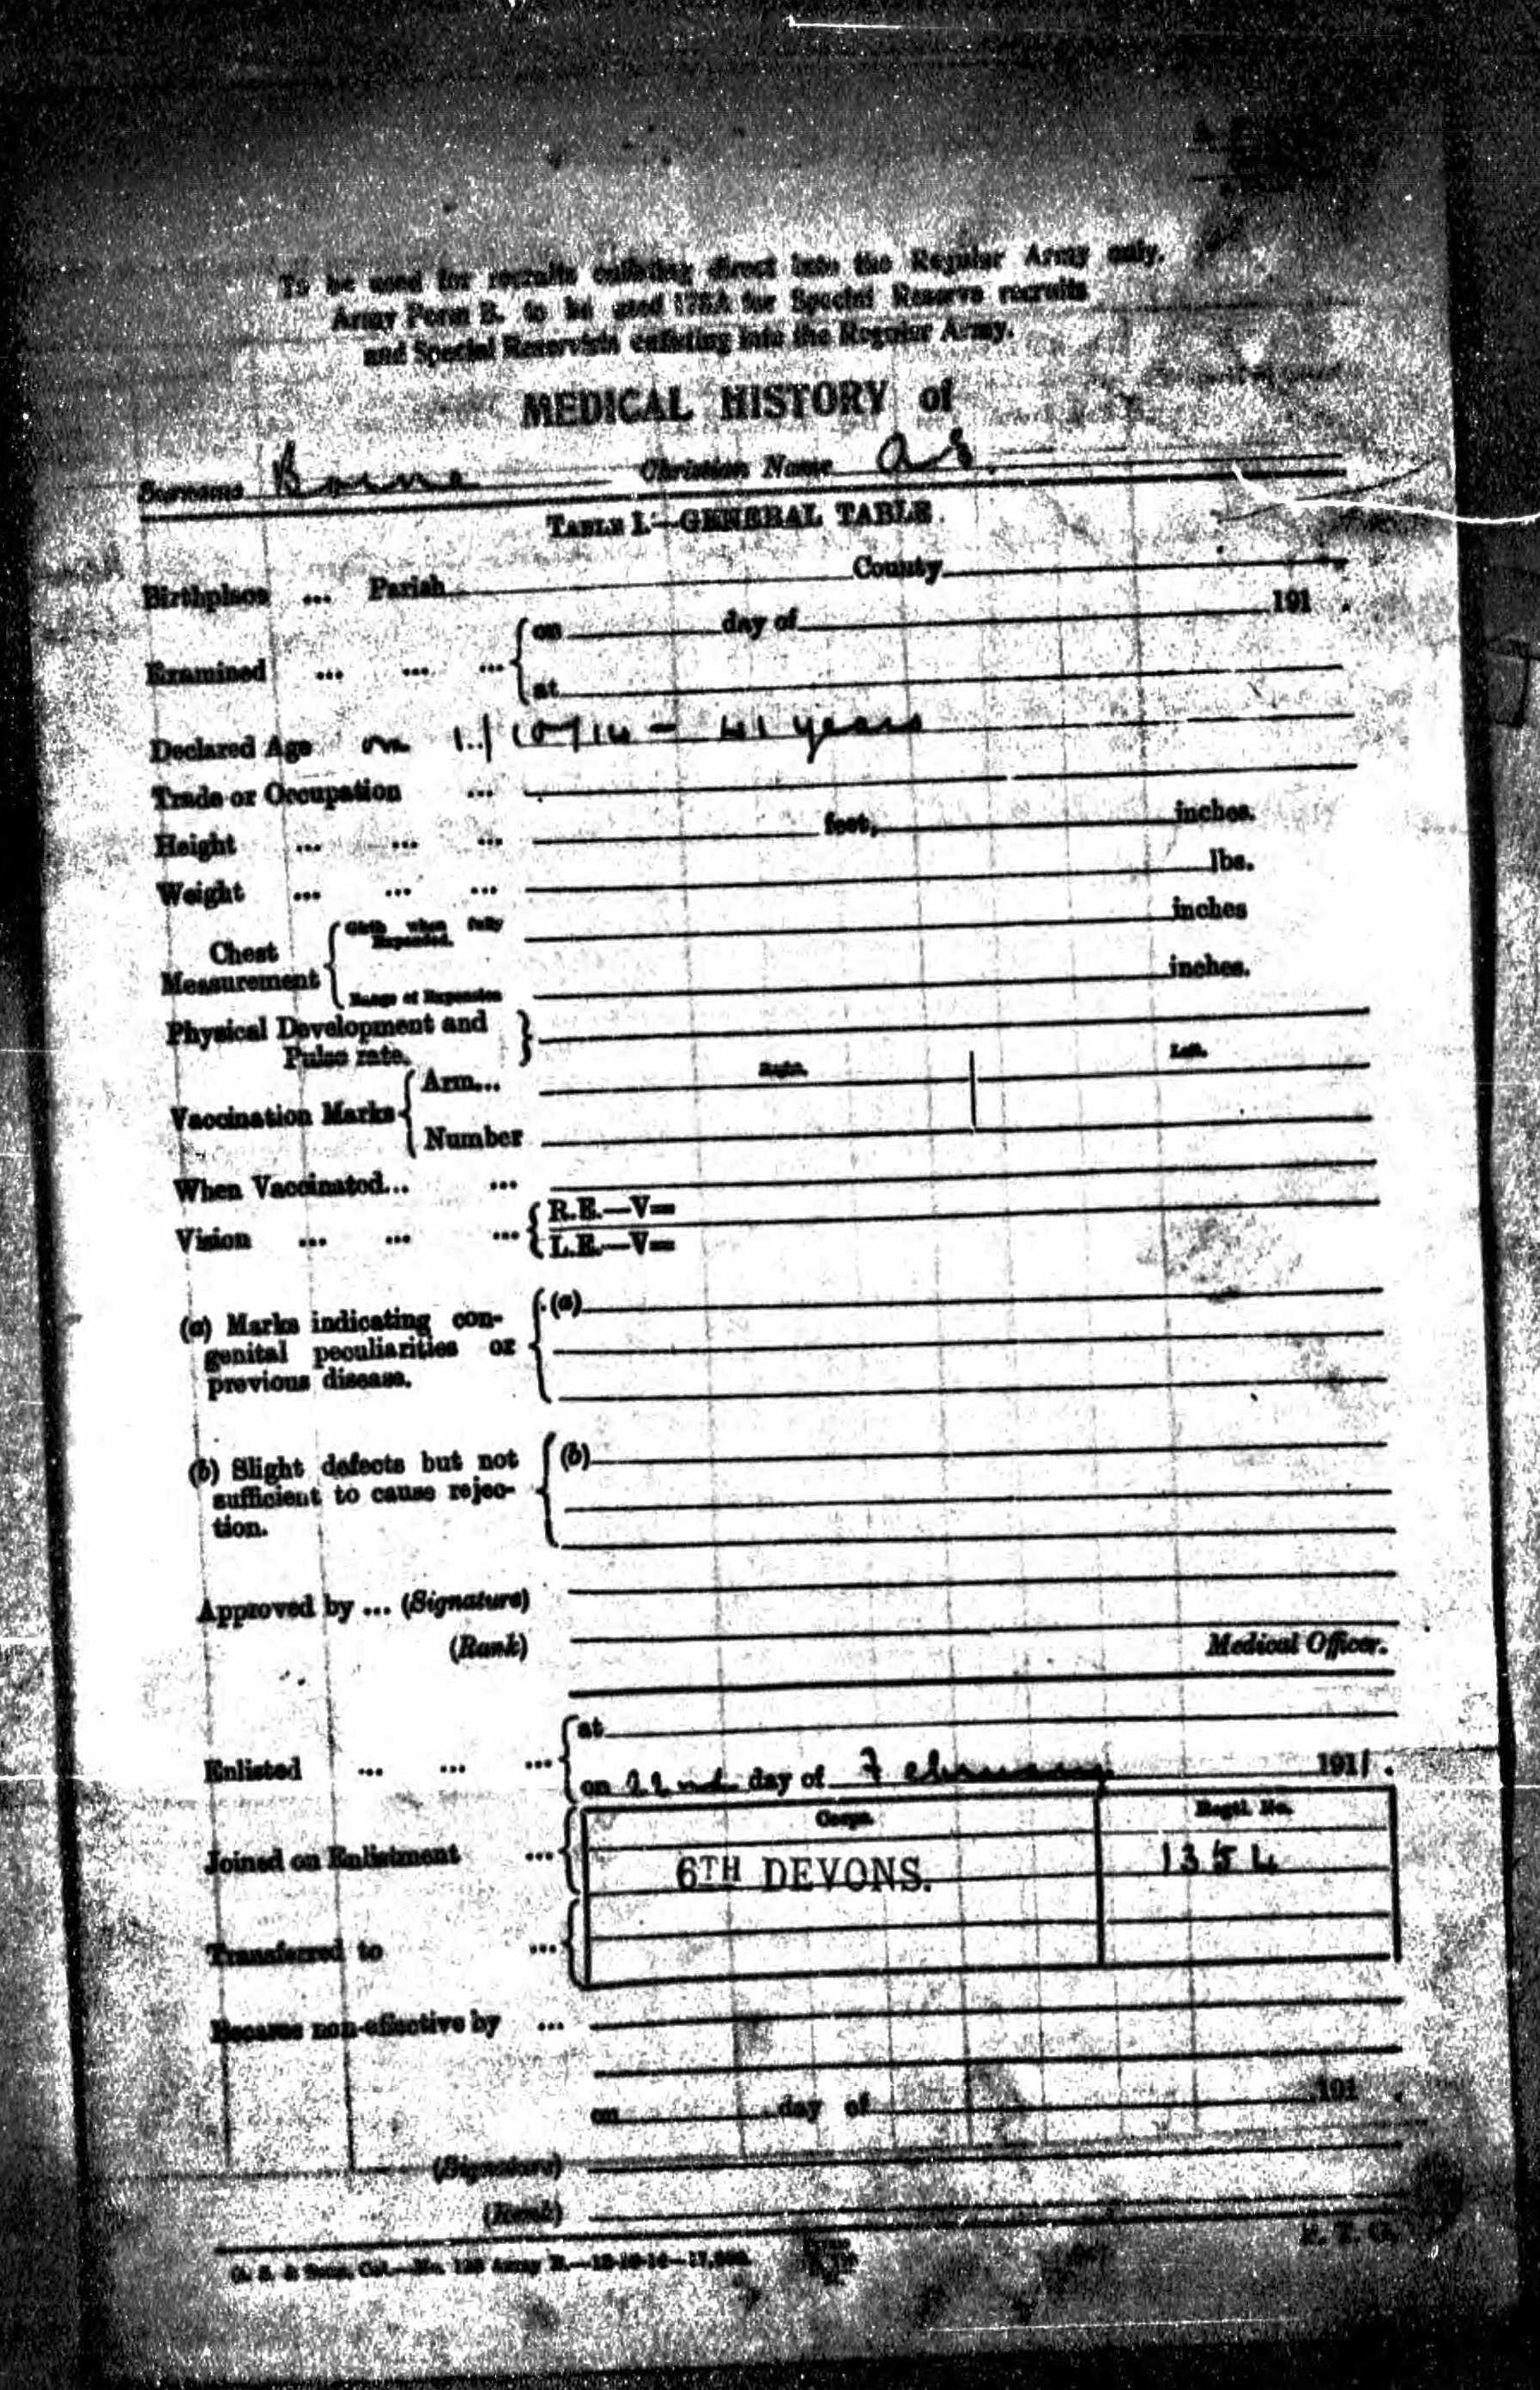 To be used for recruits enlisting direct into the Regular Army only.
Army Form B. to be used 178A for Special Reserve recruits
and Special Reservists enlisting into the Regular Army.
MEDICAL HISTORY of
Surname Christian Name
TABLE I.—GENERAL TABLE.
Birthplace ... Parish County
Examined ... ... ... on day of 191 .
at
Declared Age on 1/10/14 - 41 years
Trade or Occupation ...
Height ... ... ... feet, inches.
Weight ... ... ... lbs.
Chest Measurement Girth when fully Expanded. inches
Range of Expansion inches.
Physical Development and
Pulse rate.
Right. Left.
Vaccination Marks Arm...
Number
When Vaccinated... ...
Vision ... ... ... R.E.—V=
L.E.—V=
(a) Marks indicating con- (a)
genital peculiarities or
previous disease.
(b) Slight defects but not (b)
sufficient to cause rejec-
tion.
Approved by ... (Signature)
(Rank) Medical Officer.
at
Enlisted ... ... ... on 22nd day of February 1911.
Corps. Regtl. No.
Joined on Enlistment ... 6TH DEVONS. 1354
Transferred to ...
Became non-effective by ...
on day of 191 .
(Signature)
(Rank)
P. T. O.